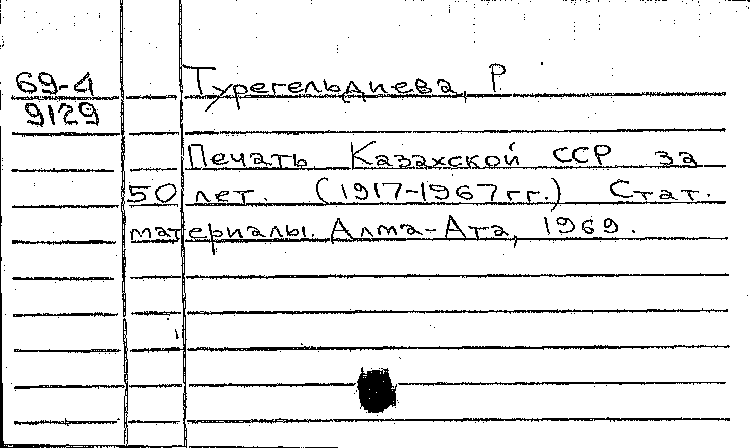 69-4
9129
Турегельдиева, Р
Печать Казахской ССР за
50 лет. (1917-1967гг.) Стат.
материалы. Алма-Ата, 1969.